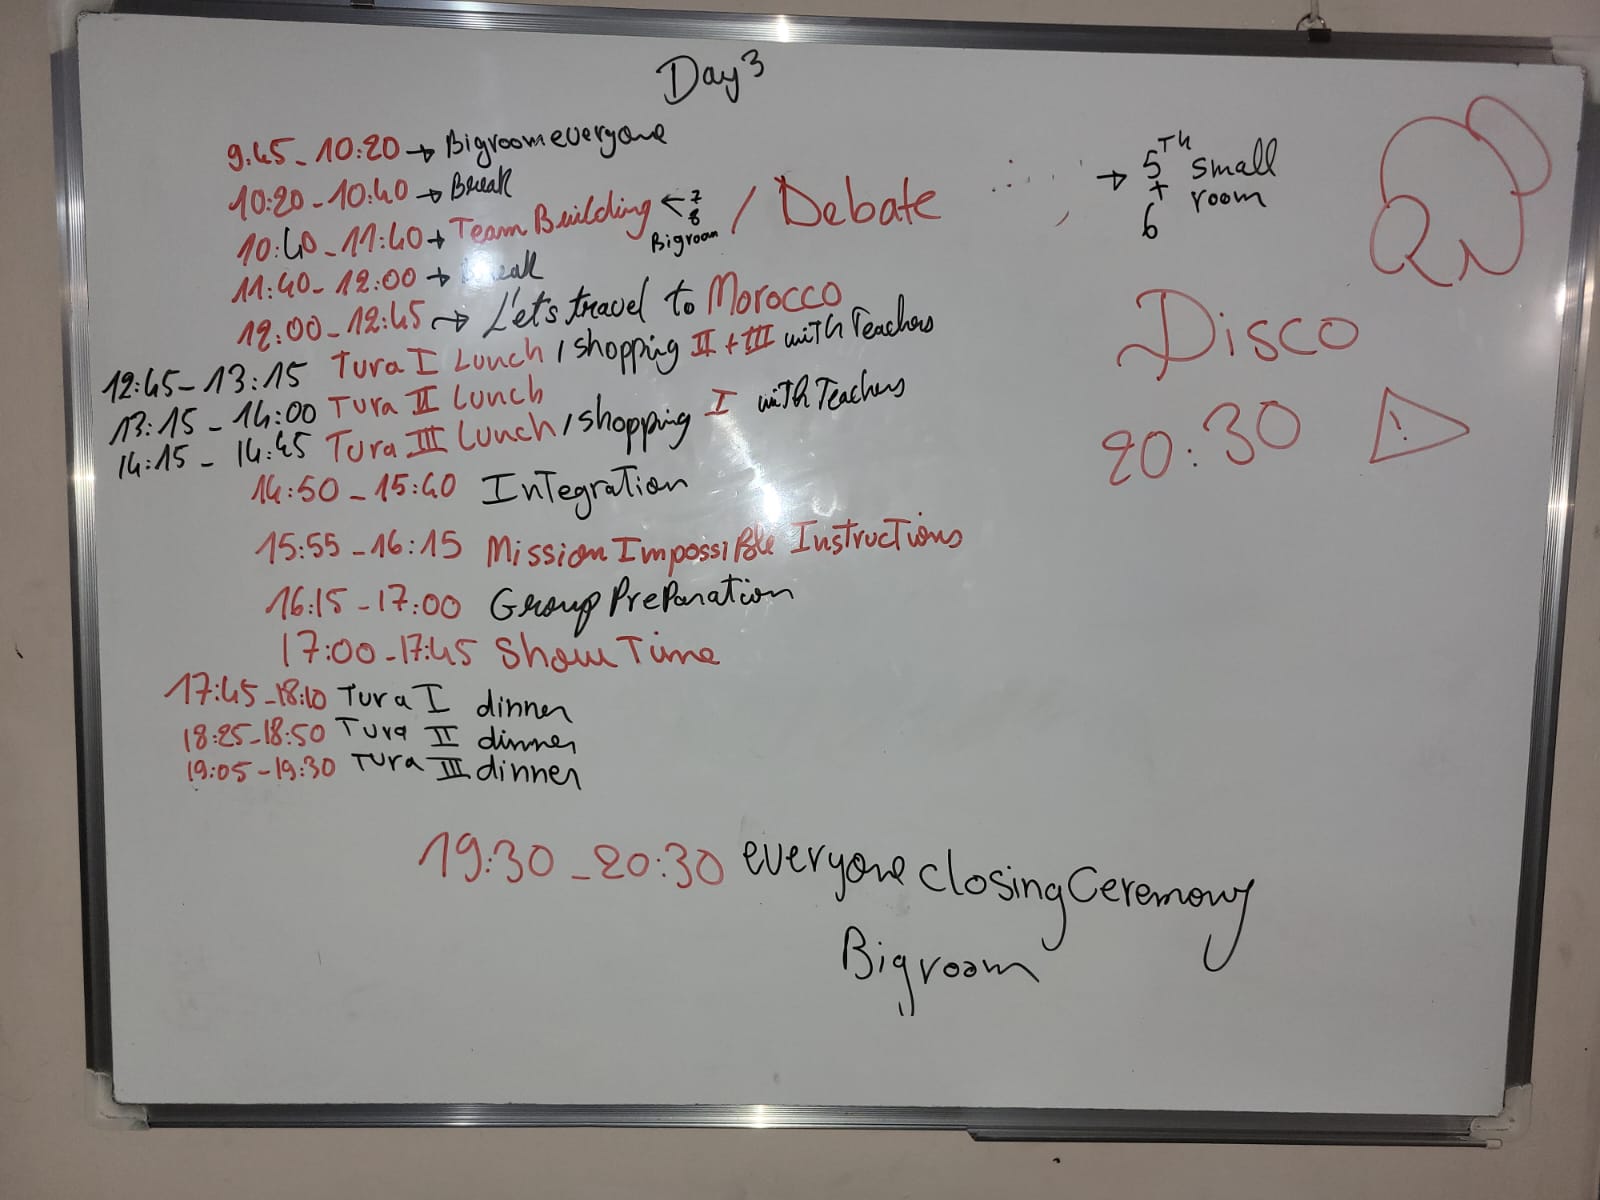 Day 3
9:45 - 10:20 → Bigroom everyone
10:20 - 10:40 → Break
10:40 - 11:40 → Team Building ← 7 8 Bigroom / Debate → 5TH + 6 small room
11:40 - 12:00 → Break
12:00 - 12:45 → Let's travel to Morocco
12:45 - 13:15 Tura I Lunch / shopping II + III with Teachers
13:15 - 14:00 Tura II Lunch
14:15 - 14:45 Tura III Lunch / shopping I with Teachers
14:50 - 15:40 Integration
15:55 - 16:15 Mission Impossible Instructions
16:15 - 17:00 Group Preparation
17:00 - 17:45 Show Time
17:45 - 18:10 Tura I dinner
18:25 - 18:50 Tura II dinner
19:05 - 19:30 Tura III dinner
19:30 - 20:30 everyone closing Ceremony
Bigroom
Disco
20:30 !